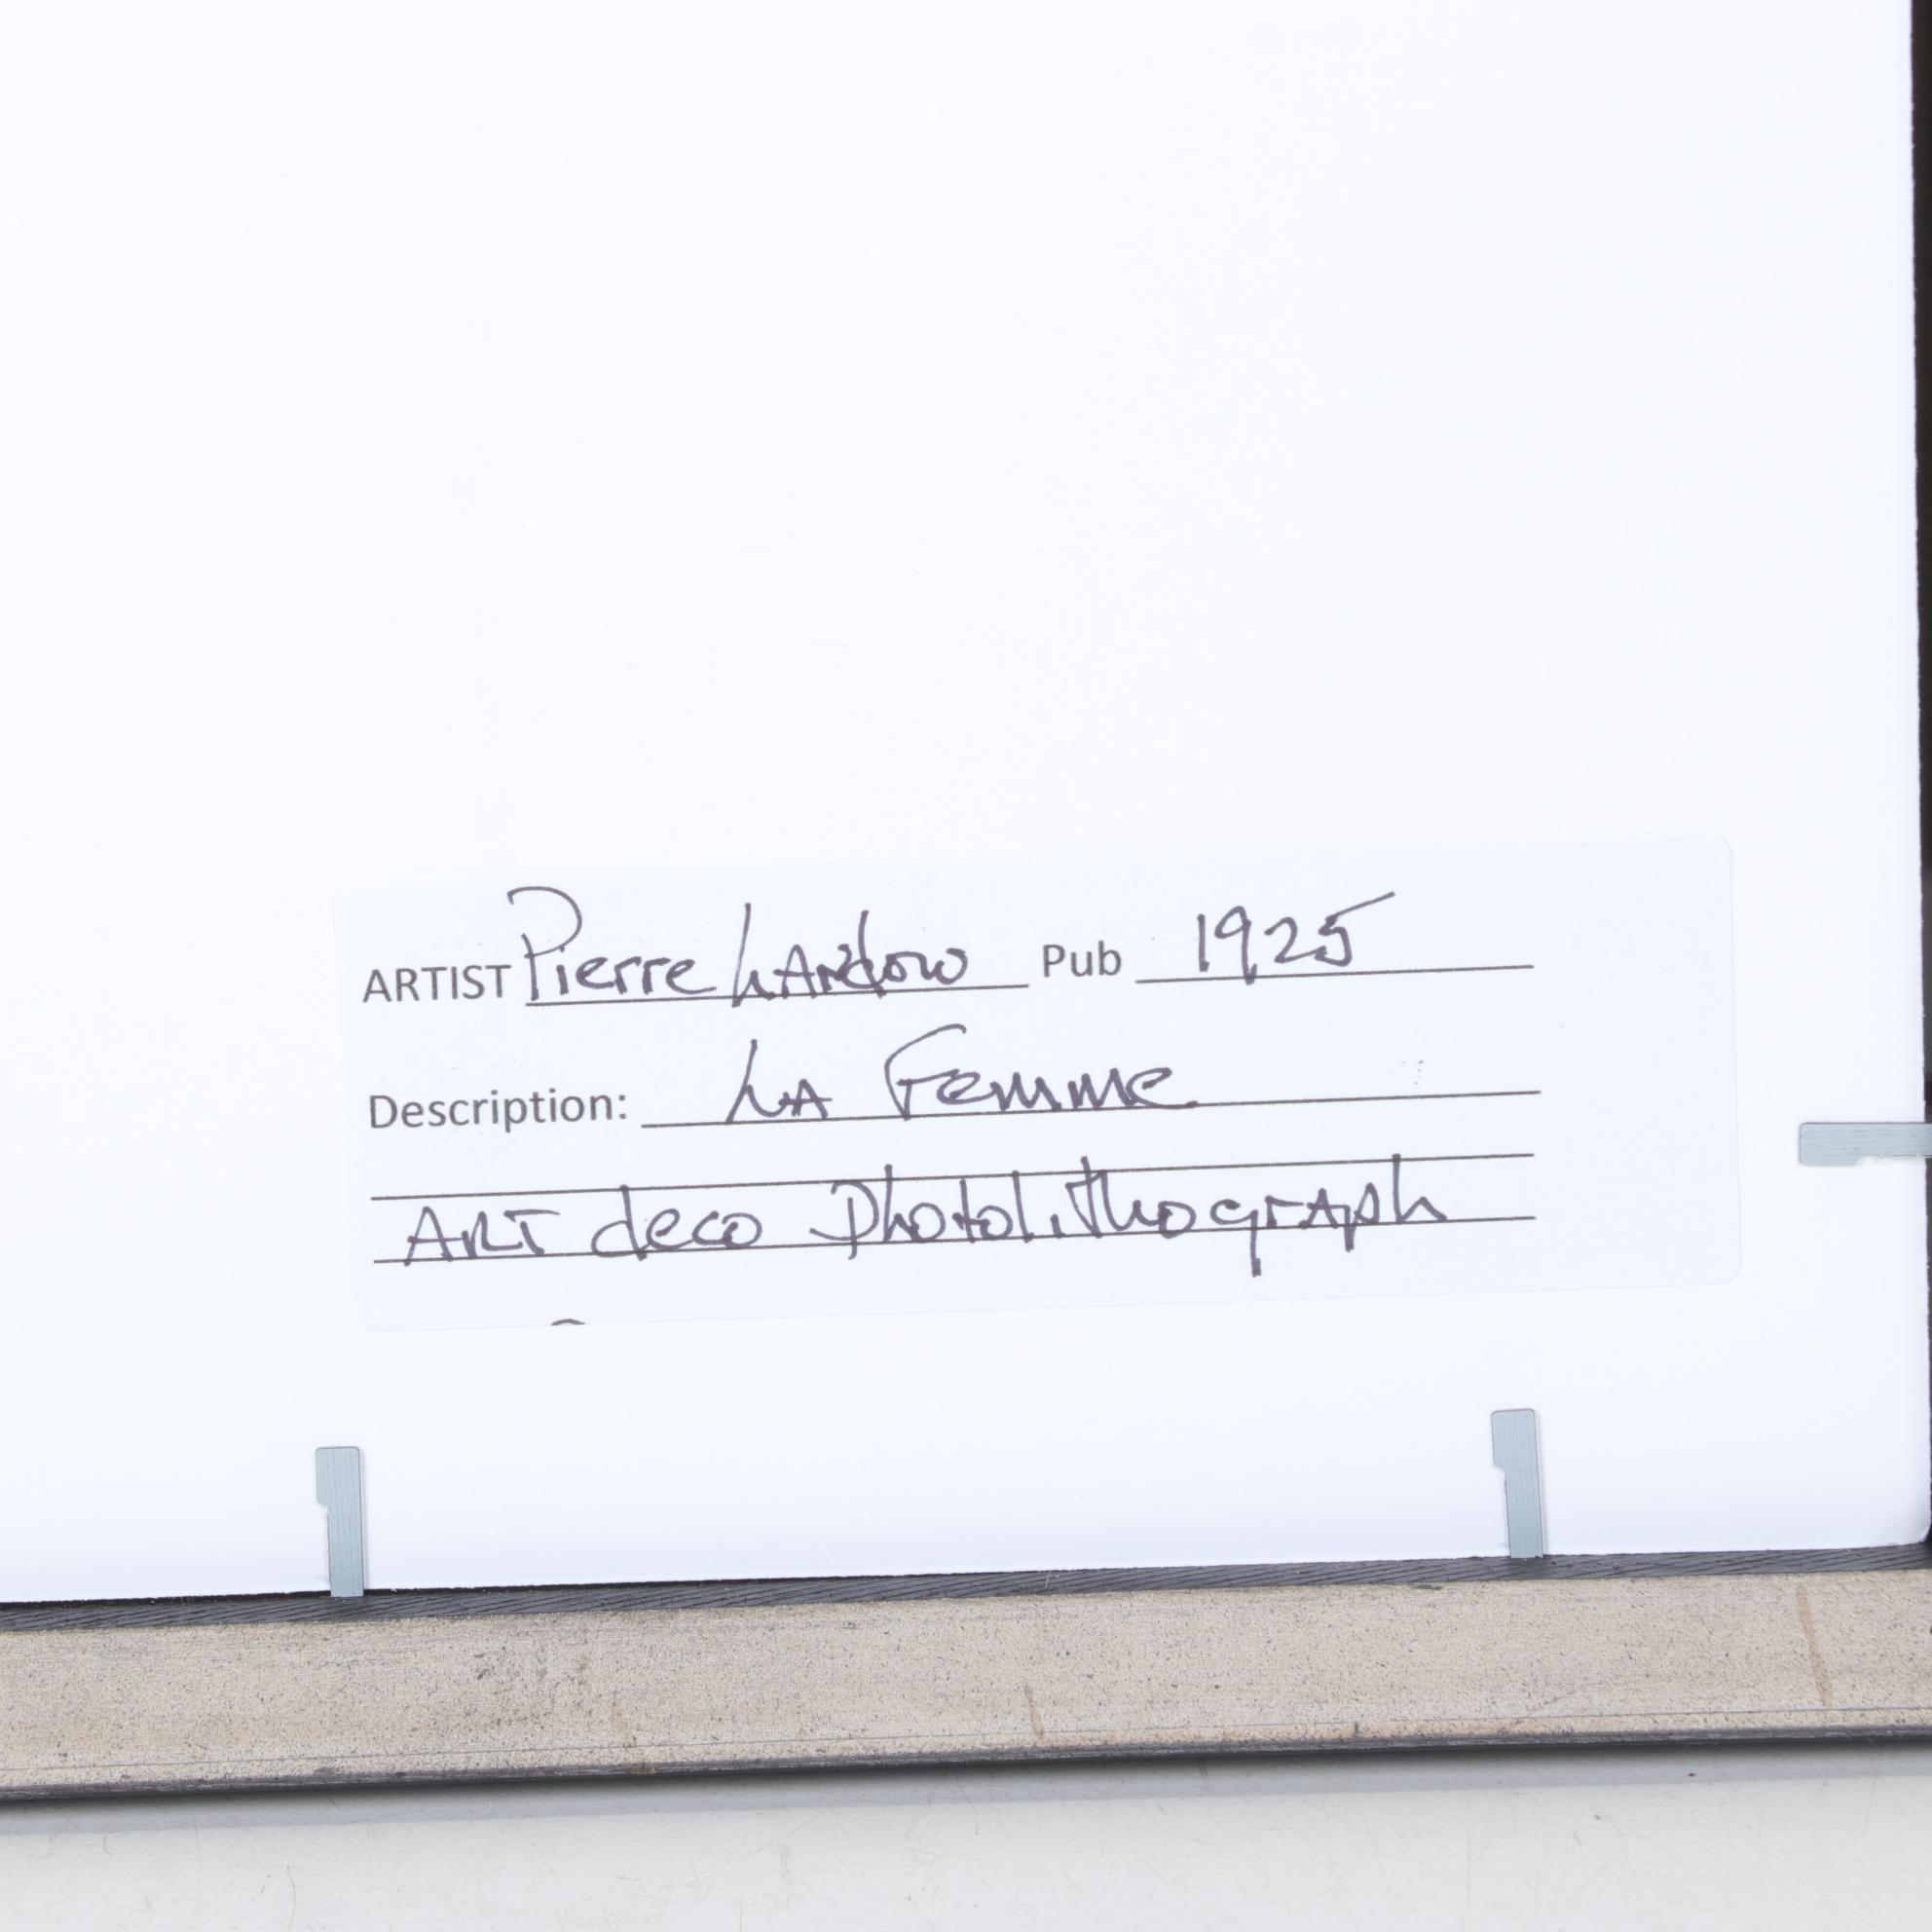 ARTIST Pierre LANdow Pub 1925
Description: LA Femme
ART deco Photolithograph